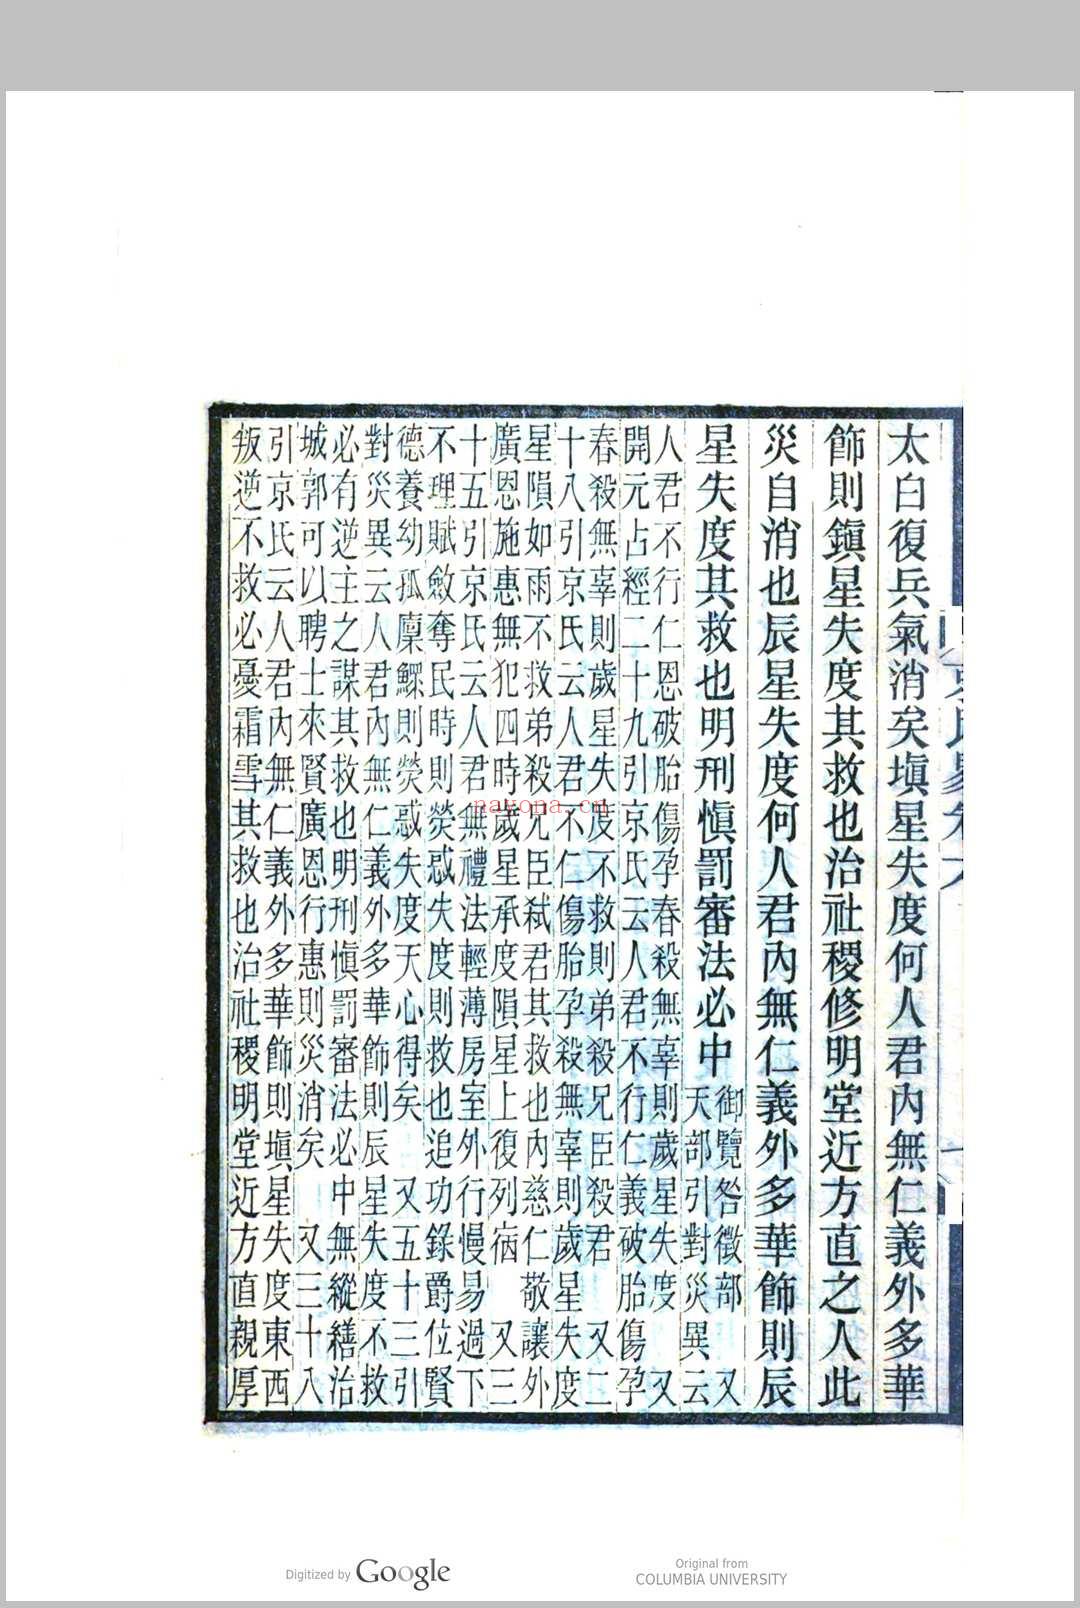 太白復兵氣消矣塡星失度何人君內無仁義外多華
飾則鎭星失度其救也治社稷修明堂近方直之人此
災自消也辰星失度何人君內無仁義外多華飾則辰
星失度其救也明刑愼罰審法必中
御覽咎徵部　又
天部引對災異云
人君不行仁恩破胎傷孕春殺無辜則歲星失度　又
開元占經二十九引京氏云人君不行仁義破胎傷孕
春殺無辜則歲星失度不救則弟殺兄臣殺君　又二
十八引京氏云人君不仁傷胎孕殺無辜則歲星失度
星隕如雨不救弟殺兄臣弑君其救也內慈仁敬讓外
廣恩施惠無犯四時歲星承度隕星上復列　又三
十五引京氏云人君無禮法輕薄房室外行慢易過下
不理賦斂奪民時則熒惑失度則救也追功錄爵位賢
德養幼孤廩鰥則熒惑失度天心得矣　又五十三引
對災異云人君內無仁義外多華飾則辰星失度不救
必有逆主之謀其救也明刑愼罰審法必中無縱繕治
城郭可以聘士來賢廣恩行惠則災消矣　又三十八
引京氏云人君內無仁義外多華飾則塡星失度東西
叛逆不救必憂霜雪其救也治社稷明堂近方直親厚
nayona.cn
Digitized by Google
Original from
COLUMBIA UNIVERSITY